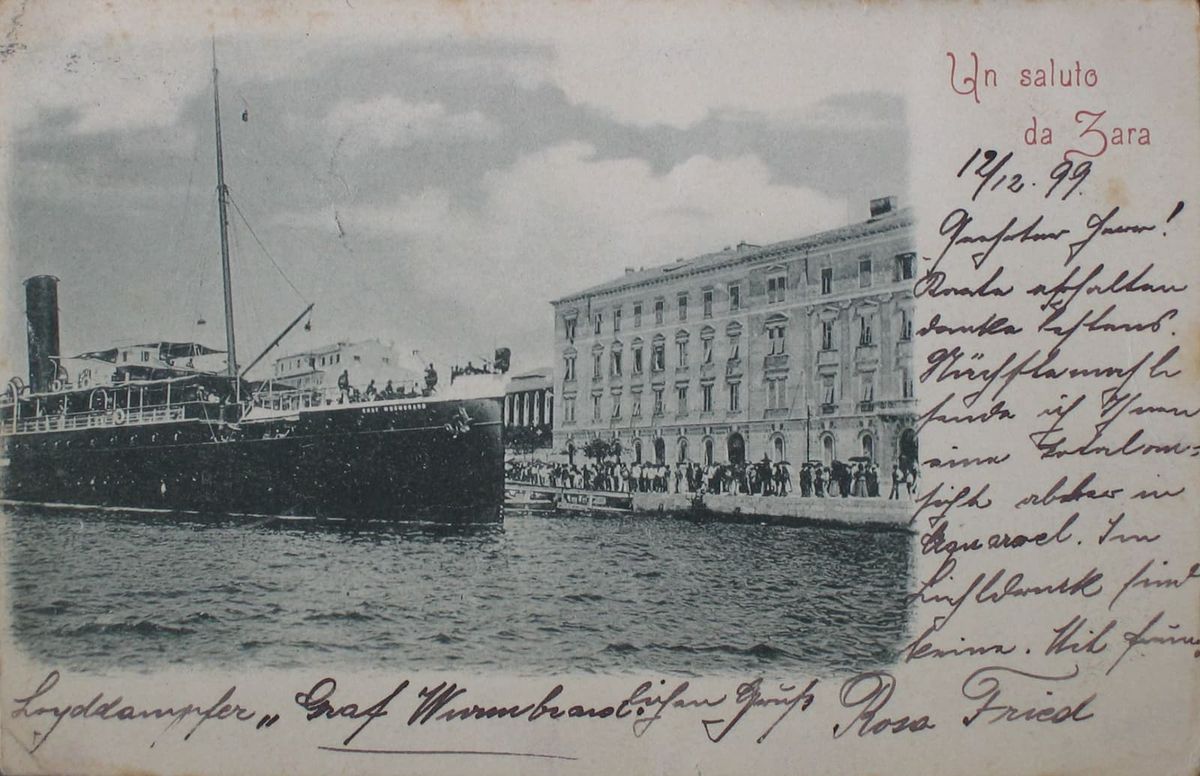 Un saluto
da Zara
12/12. 99.
Geehrter Herr!
Karte erhalten
danke bestens.
Nächstesmahl
sende ich Ihnen
eine Totalan-
sicht aber in
Aquarel. Im
Lichtdruck sind
keine. Mit freun-
lichen Gruß Rosa Fried
Loyddampfer „Graf Wurmbrand
GRAF WURMBRAND